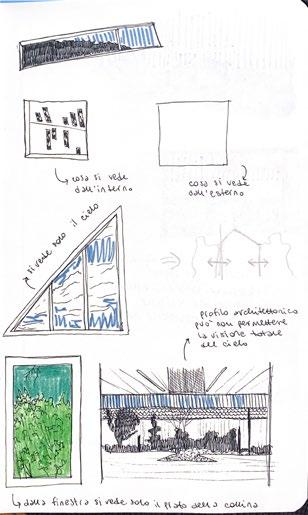 cosa si vede
dall'interno
cosa si vede
dall'esterno
si vede solo il cielo
profilo architettonico
può non permettere
la visione totale
del cielo
dalla finestra si vede solo il prato della collina